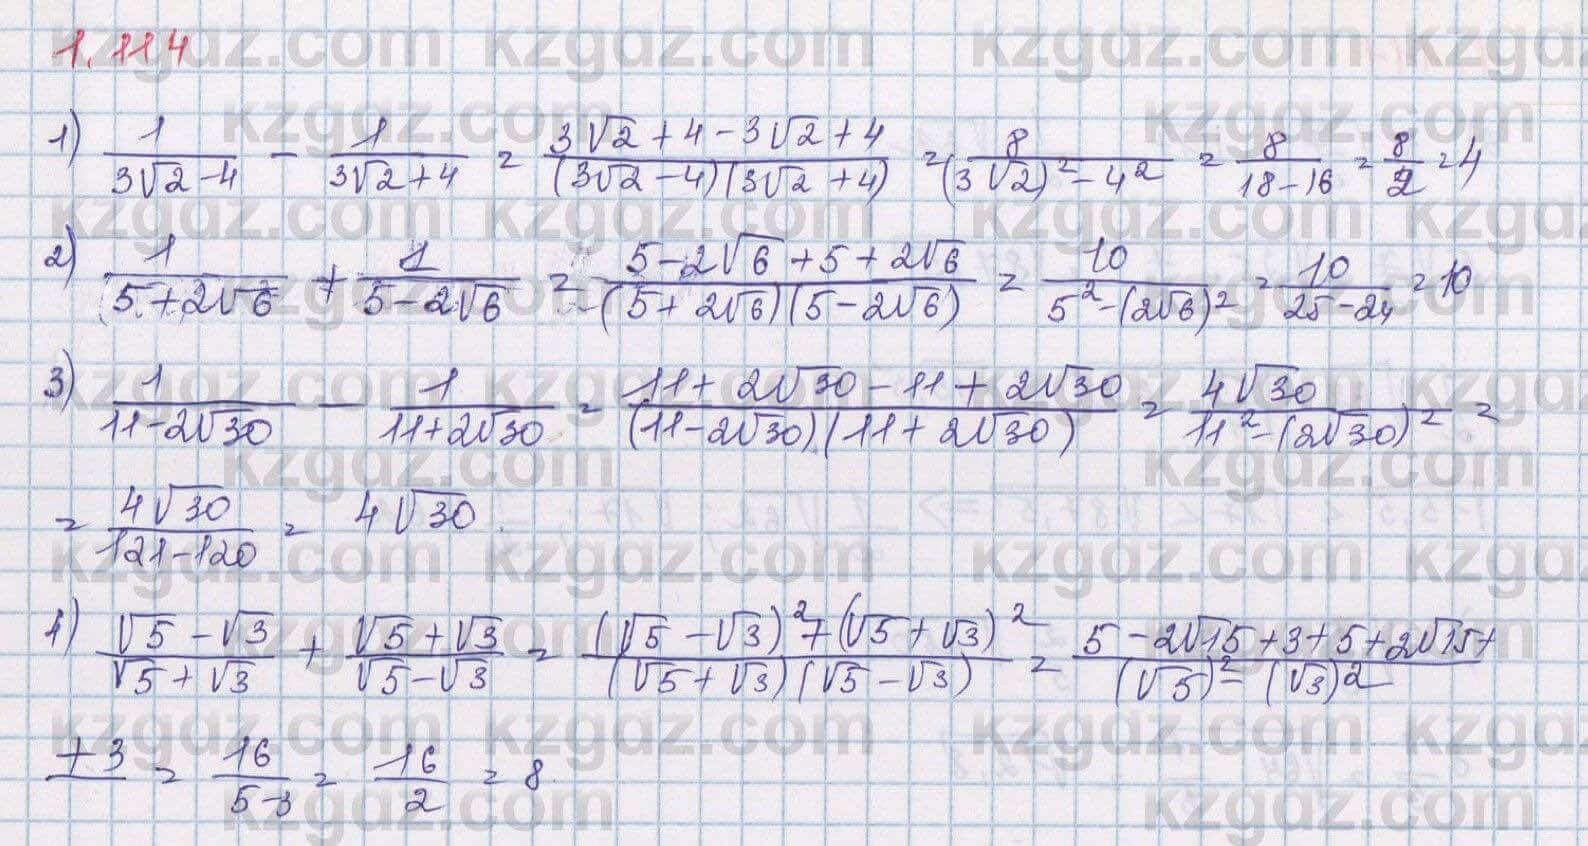 1.114
1) 1/(3√2-4) - 1/(3√2+4) = (3√2+4-3√2+4)/((3√2-4)(3√2+4)) = 8/((3√2)²-4²) = 8/(18-16) = 8/2 = 4
2) 1/(5+2√6) + 1/(5-2√6) = (5-2√6+5+2√6)/((5+2√6)(5-2√6)) = 10/(5²-(2√6)²) = 10/(25-24) = 10
3) 1/(11-2√30) - 1/(11+2√30) = (11+2√30-11+2√30)/((11-2√30)(11+2√30)) = 4√30/(11²-(2√30)²) =
= 4√30/(121-120) = 4√30.
4) (√5-√3)/(√5+√3) + (√5+√3)/(√5-√3) = ((√5-√3)²+(√5+√3)²)/((√5+√3)(√5-√3)) = (5-2√15+3+5+2√15+)/((√5)²-(√3)²)
+3 = 16/(5-3) = 16/2 = 8
kzgdz.com